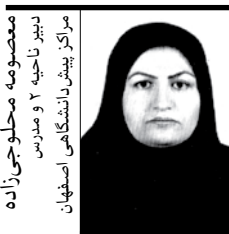 معصومه محلوجی‌زاده
دبیر ناحیه ۲ و مدرس
مراکز پیش‌دانشگاهی اصفهان